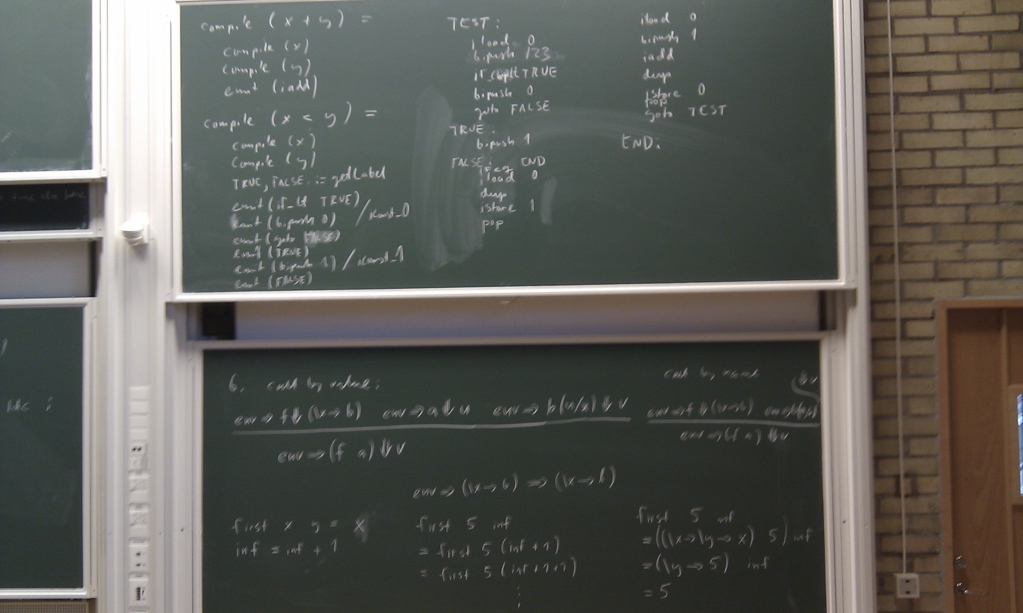 compile (x + y) =
compile (x)
compile (y)
emit (iadd)
compile (x < y) =
compile (x)
compile (y)
TRUE, FALSE := getLabel
emit (if_lt TRUE)
emit (bipush 0) / iconst_0
emit (goto FALSE)
emit (TRUE)
emit (bipush 1) / iconst_1
emit (FALSE)
TEST:
iload 0
bipush 123
TRUE
bipush 0
goto FALSE
TRUE:
bipush 1
FALSE:
ifeq END
iload 0
dup
istore 1
pop
iload 0
bipush 1
iadd
dup
istore 0
pop
goto TEST
END:
6. call by value:
env => f ⇓ (\x -> b) env => a ⇓ u env => b(u/x) ⇓ v
env => (f a) ⇓ v
call by name
env => f ⇓ (\x -> b)
env => (f a) ⇓ v
env => (\x -> b) => (\x -> b)
first x y = x
inf = inf + 1
first 5 inf
= first 5 (inf + 1)
= first 5 (inf + 1 + 1)
⋮
first 5 inf
= ((\x -> \y -> x) 5) inf
= (\y -> 5) inf
= 5